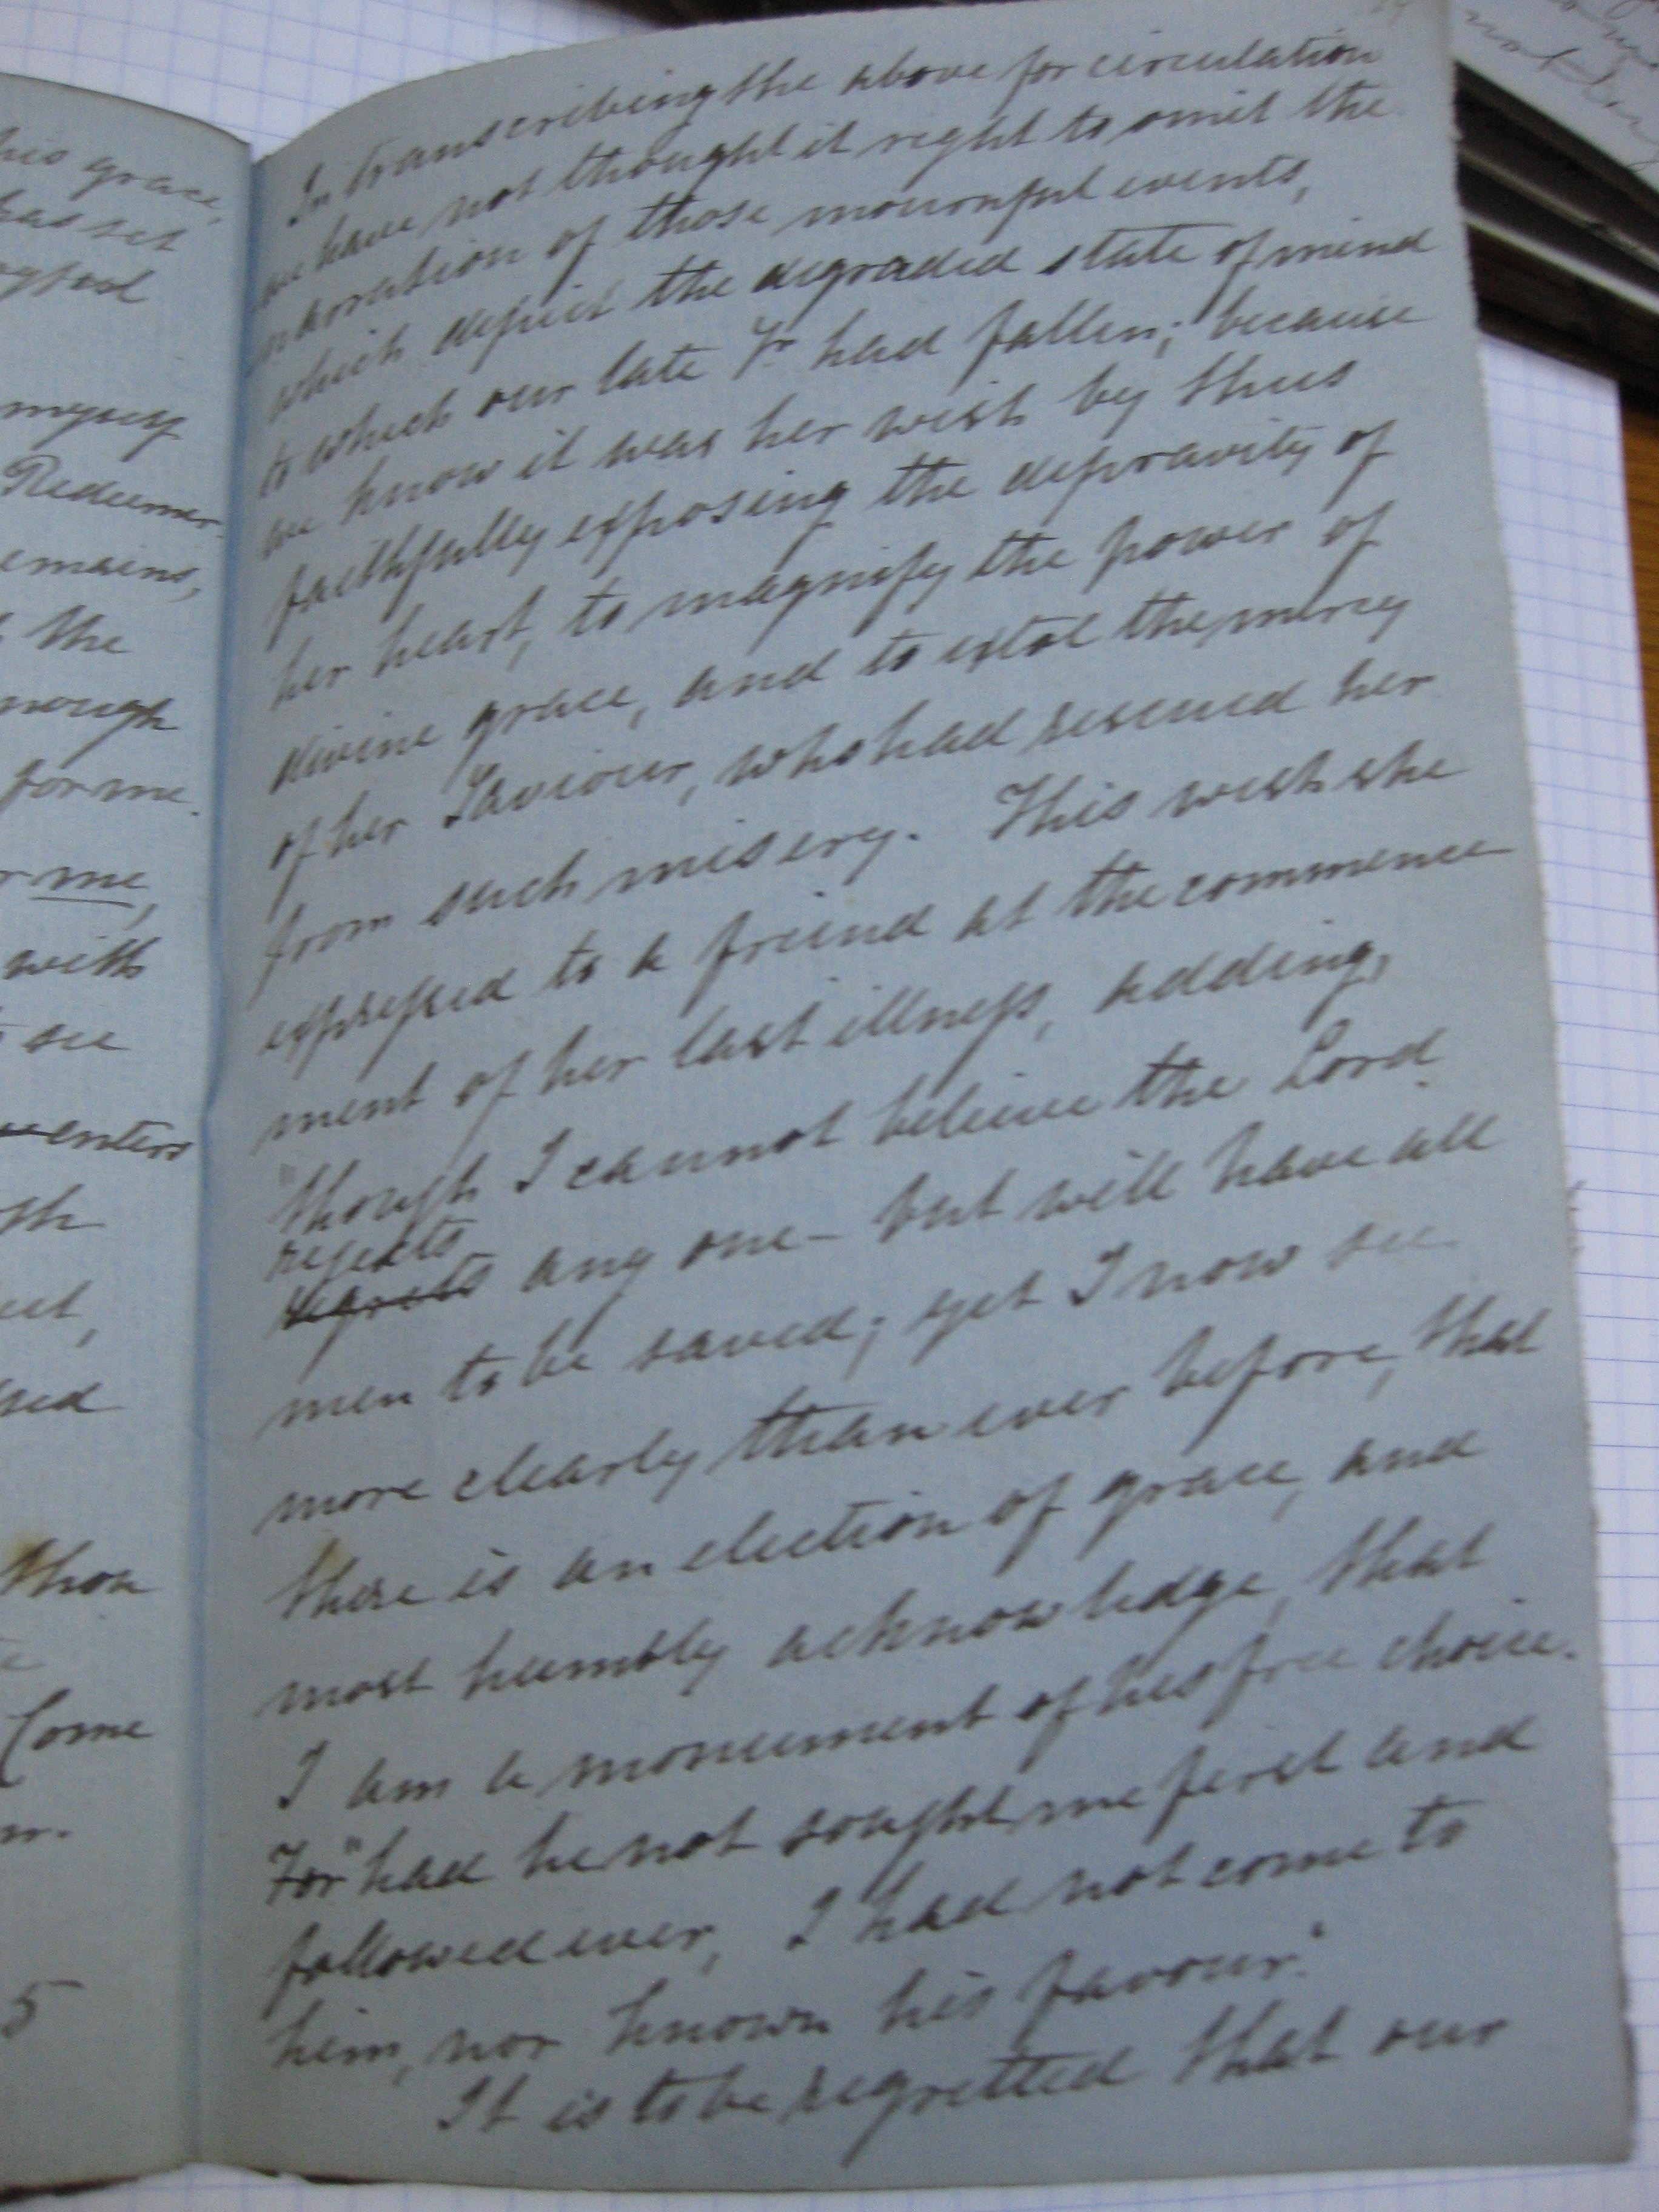 his grace,
has set
myself
Redeemer.
remains,
the
enough
for me.
me,
with
see
enters
thou
Come
5
In transcribing the above for circulation
we have not thought it right to omit the
narration of those mournful events,
which depict the degraded state of mind
to which our late Sr had fallen; because
we know it was her wish by thus
faithfully exposing the depravity of
her heart, to magnify the power of
divine grace, and to extol the mercy
of her Saviour, who had rescued her
from such misery. This wish she
expressed to a friend at the commence
ment of her last illness, adding,
"though I cannot believe the Lord
rejects
regrets any one - but will have all
men to be saved; yet I now see
more clearly than ever before, that
there is an election of grace, and
most humbly acknowledge, that
I am a monument of his free choice.
For "had he not sought me first and
followed ever, I had not come to
him, nor known his favour."
It is to be regretted that our